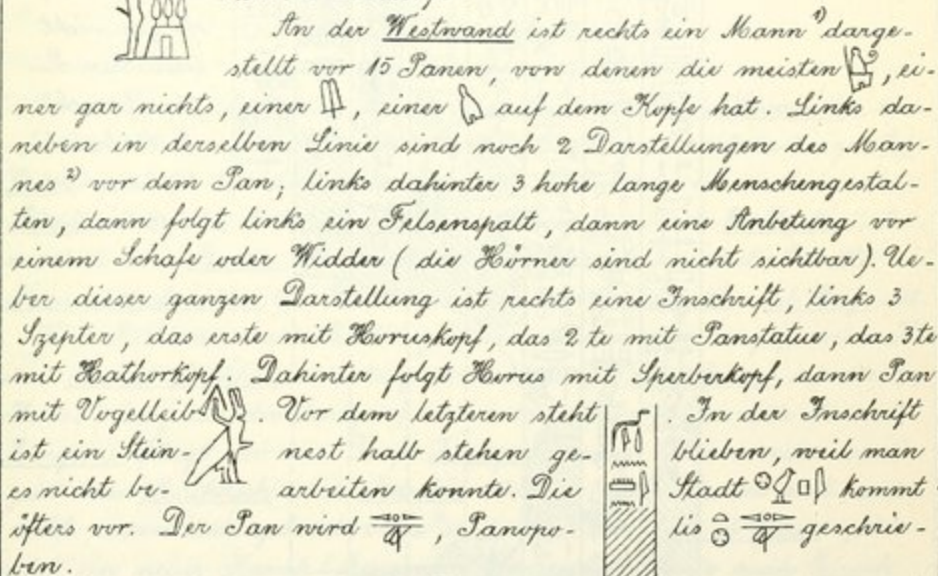 An der Westwand ist rechts ein Mann 1) darge-
stellt vor 15 Panen, von denen die meisten , ei-
ner gar nichts, einer , einer auf dem Kopfe hat. Links da-
neben in derselben Linie sind noch 2 Darstellungen des Man-
nes 2) vor dem Pan; links dahinter 3 hohe lange Menschengestal-
ten, dann folgt links ein Felsenspalt, dann eine Anbetung vor
einem Schafe oder Widder (die Hörner sind nicht sichtbar). Ue-
ber dieser ganzen Darstellung ist rechts eine Inschrift, links 3
Szepter, das erste mit Horuskopf, das 2te mit Panstatue, das 3te
mit Hathorkopf. Dahinter folgt Horus mit Sperberkopf, dann Pan
mit Vogelleib . Vor dem letzteren steht . In der Inschrift
ist ein Stein- nest halb stehen ge- blieben, weil man
es nicht be- arbeiten konnte. Die Stadt kommt
öfters vor. Der Pan wird , Panopo- lis geschrie-
ben.